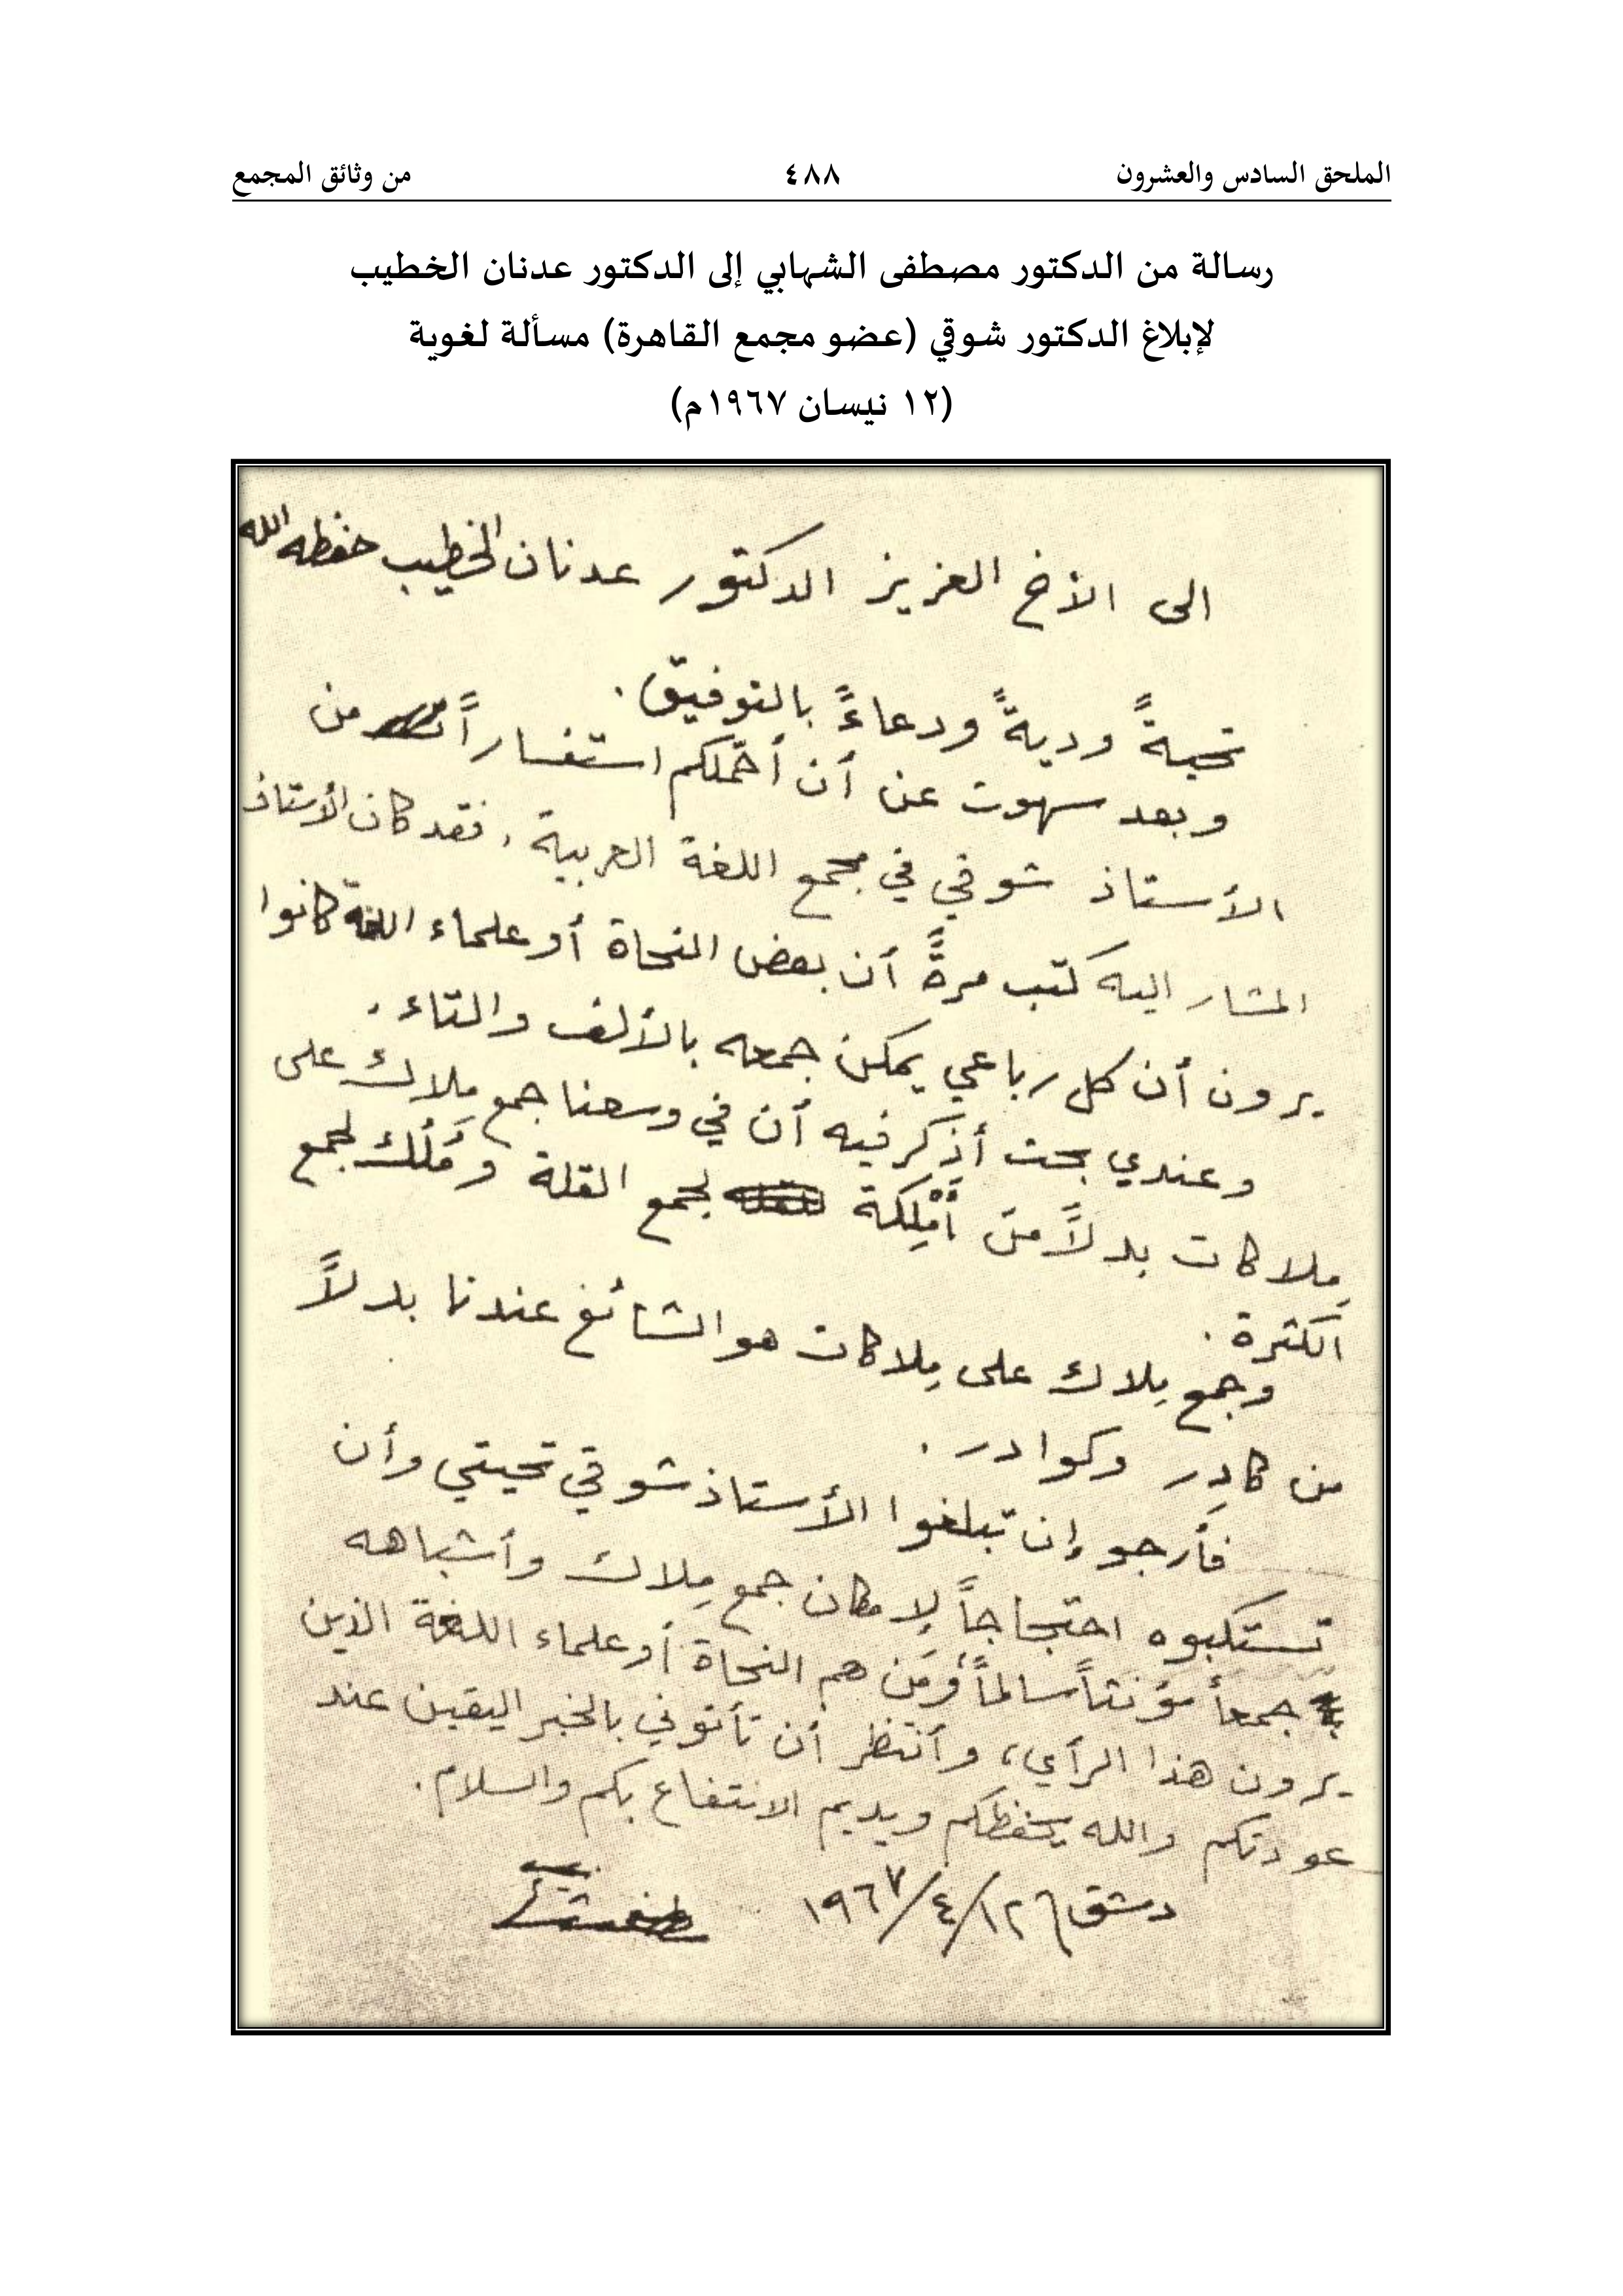 الملحق السادس والعشرون ٤٨٨ من وثائق المجمع
رسالة من الدكتور مصطفى الشهابي إلى الدكتور عدنان الخطيب
لإبلاغ الدكتور شوقي (عضو مجمع القاهرة) مسألة لغوية
(١٢ نيسان ١٩٦٧م)
الى الأخ العزيز الدكتور عدنان الخطيب حفظه الله
تحيةً وديةً ودعاءً بالتوفيق.
وبعد سهوت عن أن أحمّلكم استفساراً من
الأستاذ شوقي في مجمع اللغة العربية، فقد كان الأستاذ
المشار اليه كتب مرةً أن بعض النحاة أو علماء اللغة كانوا
يرون أن كل رباعي يمكن جمعه بالألف والتاء.
وعندي بحث أذكر فيه أن في وسعنا جمع مِلاك على
مِلاكات بدلاً من أَمْلِكة لجمع القلة ومُلُك لجمع
الكثرة.
وجمع مِلاك على مِلاكات هو الشائع عندنا بدلاً
من كادِر وكوادر.
فأرجو إن تبلغوا الأستاذ شوقي تحيتي وأن
تستكتبوه احتجاجاً لإمكان جمع مِلاك وأشباهه
جمعاً مؤنثاً سالماً، ومَن هم النحاة أو علماء اللغة الذين
يرون هذا الرأي، وأنتظر أن تأتوني بالخبر اليقين عند
عودتكم والله يحفظكم ويديم الانتفاع بكم والسلام.
دمشق ١٩٦٧/٤/١٢